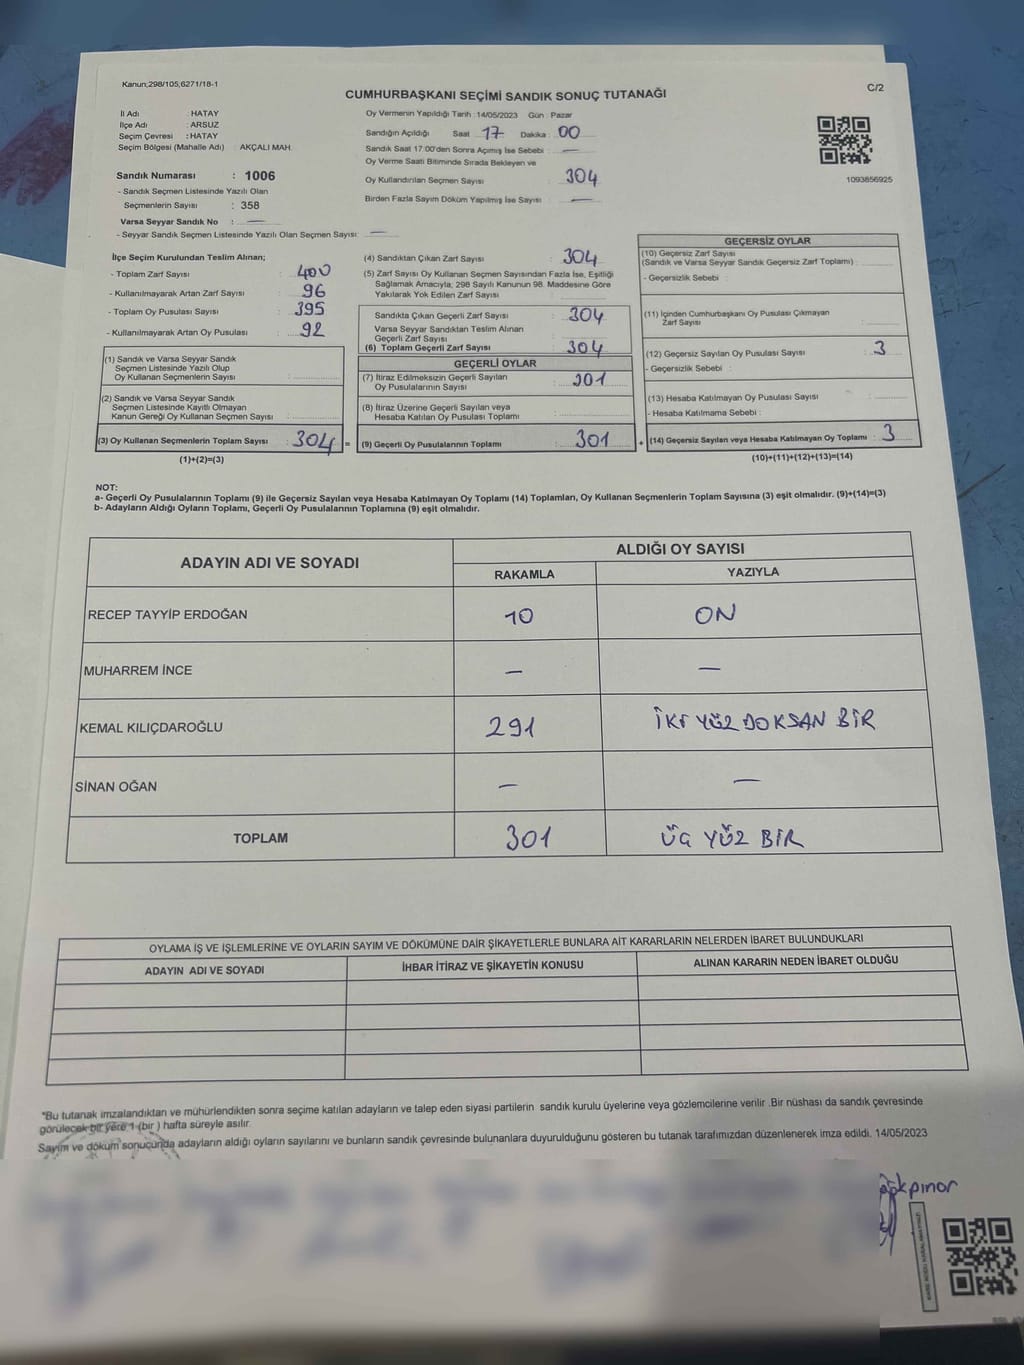 Kanun;298/105,6271/18-1
CUMHURBAŞKANI SEÇİMİ SANDIK SONUÇ TUTANAĞI
C/2
İl Adı : HATAY
İlçe Adı : ARSUZ
Seçim Çevresi : HATAY
Seçim Bölgesi (Mahalle Adı) : AKÇALI MAH.
Sandık Numarası : 1006
- Sandık Seçmen Listesinde Yazılı Olan
Seçmenlerin Sayısı : 358
Varsa Seyyar Sandık No : —
- Seyyar Sandık Seçmen Listesinde Yazılı Olan Seçmen Sayısı: —
Oy Vermenin Yapıldığı Tarih :14/05/2023 Gün : Pazar
Sandığın Açıldığı Saat 17 Dakika : 00
Sandık Saat 17:00'den Sonra Açımış İse Sebebi : —
Oy Verme Saati Bitiminde Sırada Bekleyen ve
Oy Kullandırılan Seçmen Sayısı : 304
Birden Fazla Sayım Döküm Yapılmış İse Sayısı : —
1093856925
İlçe Seçim Kurulundan Teslim Alınan;
- Toplam Zarf Sayısı : 400
- Kullanılmayarak Artan Zarf Sayısı : 96
- Toplam Oy Pusulası Sayısı : 395
- Kullanılmayarak Artan Oy Pusulası : 92
(1) Sandık ve Varsa Seyyar Sandık
Seçmen Listesinde Yazılı Olup
Oy Kullanan Seçmenlerin Sayısı :
(2) Sandık ve Varsa Seyyar Sandık
Seçmen Listesinde Kayıtlı Olmayan
Kanun Gereği Oy Kullanan Seçmen Sayısı :
(3) Oy Kullanan Seçmenlerin Toplam Sayısı : 304 =
(1)+(2)=(3)
(4) Sandıktan Çıkan Zarf Sayısı : 304
(5) Zarf Sayısı Oy Kullanan Seçmen Sayısından Fazla İse, Eşitliği
Sağlamak Amacıyla, 298 Sayılı Kanunun 98. Maddesine Göre
Yakılarak Yok Edilen Zarf Sayısı :
Sandıkta Çıkan Geçerli Zarf Sayısı : 304
Varsa Seyyar Sandıktan Teslim Alınan
Geçerli Zarf Sayısı :
(6) Toplam Geçerli Zarf Sayısı : 304
GEÇERLİ OYLAR
(7) İtiraz Edilmeksizin Geçerli Sayılan
Oy Pusulalarının Sayısı : 301
(8) İtiraz Üzerine Geçerli Sayılan veya
Hesaba Katılan Oy Pusulası Toplamı :
(9) Geçerli Oy Pusulalarının Toplamı : 301 +
GEÇERSİZ OYLAR
(10) Geçersiz Zarf Sayısı
(Sandık ve Varsa Seyyar Sandık Geçersiz Zarf Toplamı) :
- Geçersizlik Sebebi :
(11) İçinden Cumhurbaşkanı Oy Pusulası Çıkmayan
Zarf Sayısı :
(12) Geçersiz Sayılan Oy Pusulası Sayısı : 3
- Geçersizlik Sebebi :
(13) Hesaba Katılmayan Oy Pusulası Sayısı :
- Hesaba Katılmama Sebebi :
(14) Geçersiz Sayılan veya Hesaba Katılmayan Oy Toplamı : 3
(10)+(11)+(12)+(13)=(14)
NOT:
a- Geçerli Oy Pusulalarının Toplamı (9) ile Geçersiz Sayılan veya Hesaba Katılmayan Oy Toplamı (14) Toplamları, Oy Kullanan Seçmenlerin Toplam Sayısına (3) eşit olmalıdır. (9)+(14)=(3)
b- Adayların Aldığı Oyların Toplamı, Geçerli Oy Pusulalarının Toplamına (9) eşit olmalıdır.
ADAYIN ADI VE SOYADI
ALDIĞI OY SAYISI
RAKAMLA YAZIYLA
RECEP TAYYİP ERDOĞAN 10 ON
MUHARREM İNCE — —
KEMAL KILIÇDAROĞLU 291 İKİ YÜZ DOKSAN BİR
SİNAN OĞAN — —
TOPLAM 301 ÜÇ YÜZ BİR
OYLAMA İŞ VE İŞLEMLERİNE VE OYLARIN SAYIM VE DÖKÜMÜNE DAİR ŞİKAYETLERLE BUNLARA AİT KARARLARIN NELERDEN İBARET BULUNDUKLARI
ADAYIN ADI VE SOYADI İHBAR İTİRAZ VE ŞİKAYETİN KONUSU ALINAN KARARIN NEDEN İBARET OLDUĞU
*Bu tutanak imzalandıktan ve mühürlendikten sonra seçime katılan adayların ve talep eden siyasi partilerin sandık kurulu üyelerine veya gözlemcilerine verilir .Bir nüshası da sandık çevresinde
görülecek bir yere 1 (bir ) hafta süreyle asılır.
Sayım ve döküm sonucunda adayların aldığı oyların sayılarını ve bunların sandık çevresinde bulunanlara duyurulduğunu gösteren bu tutanak tarafımızdan düzenlenerek imza edildi. 14/05/2023